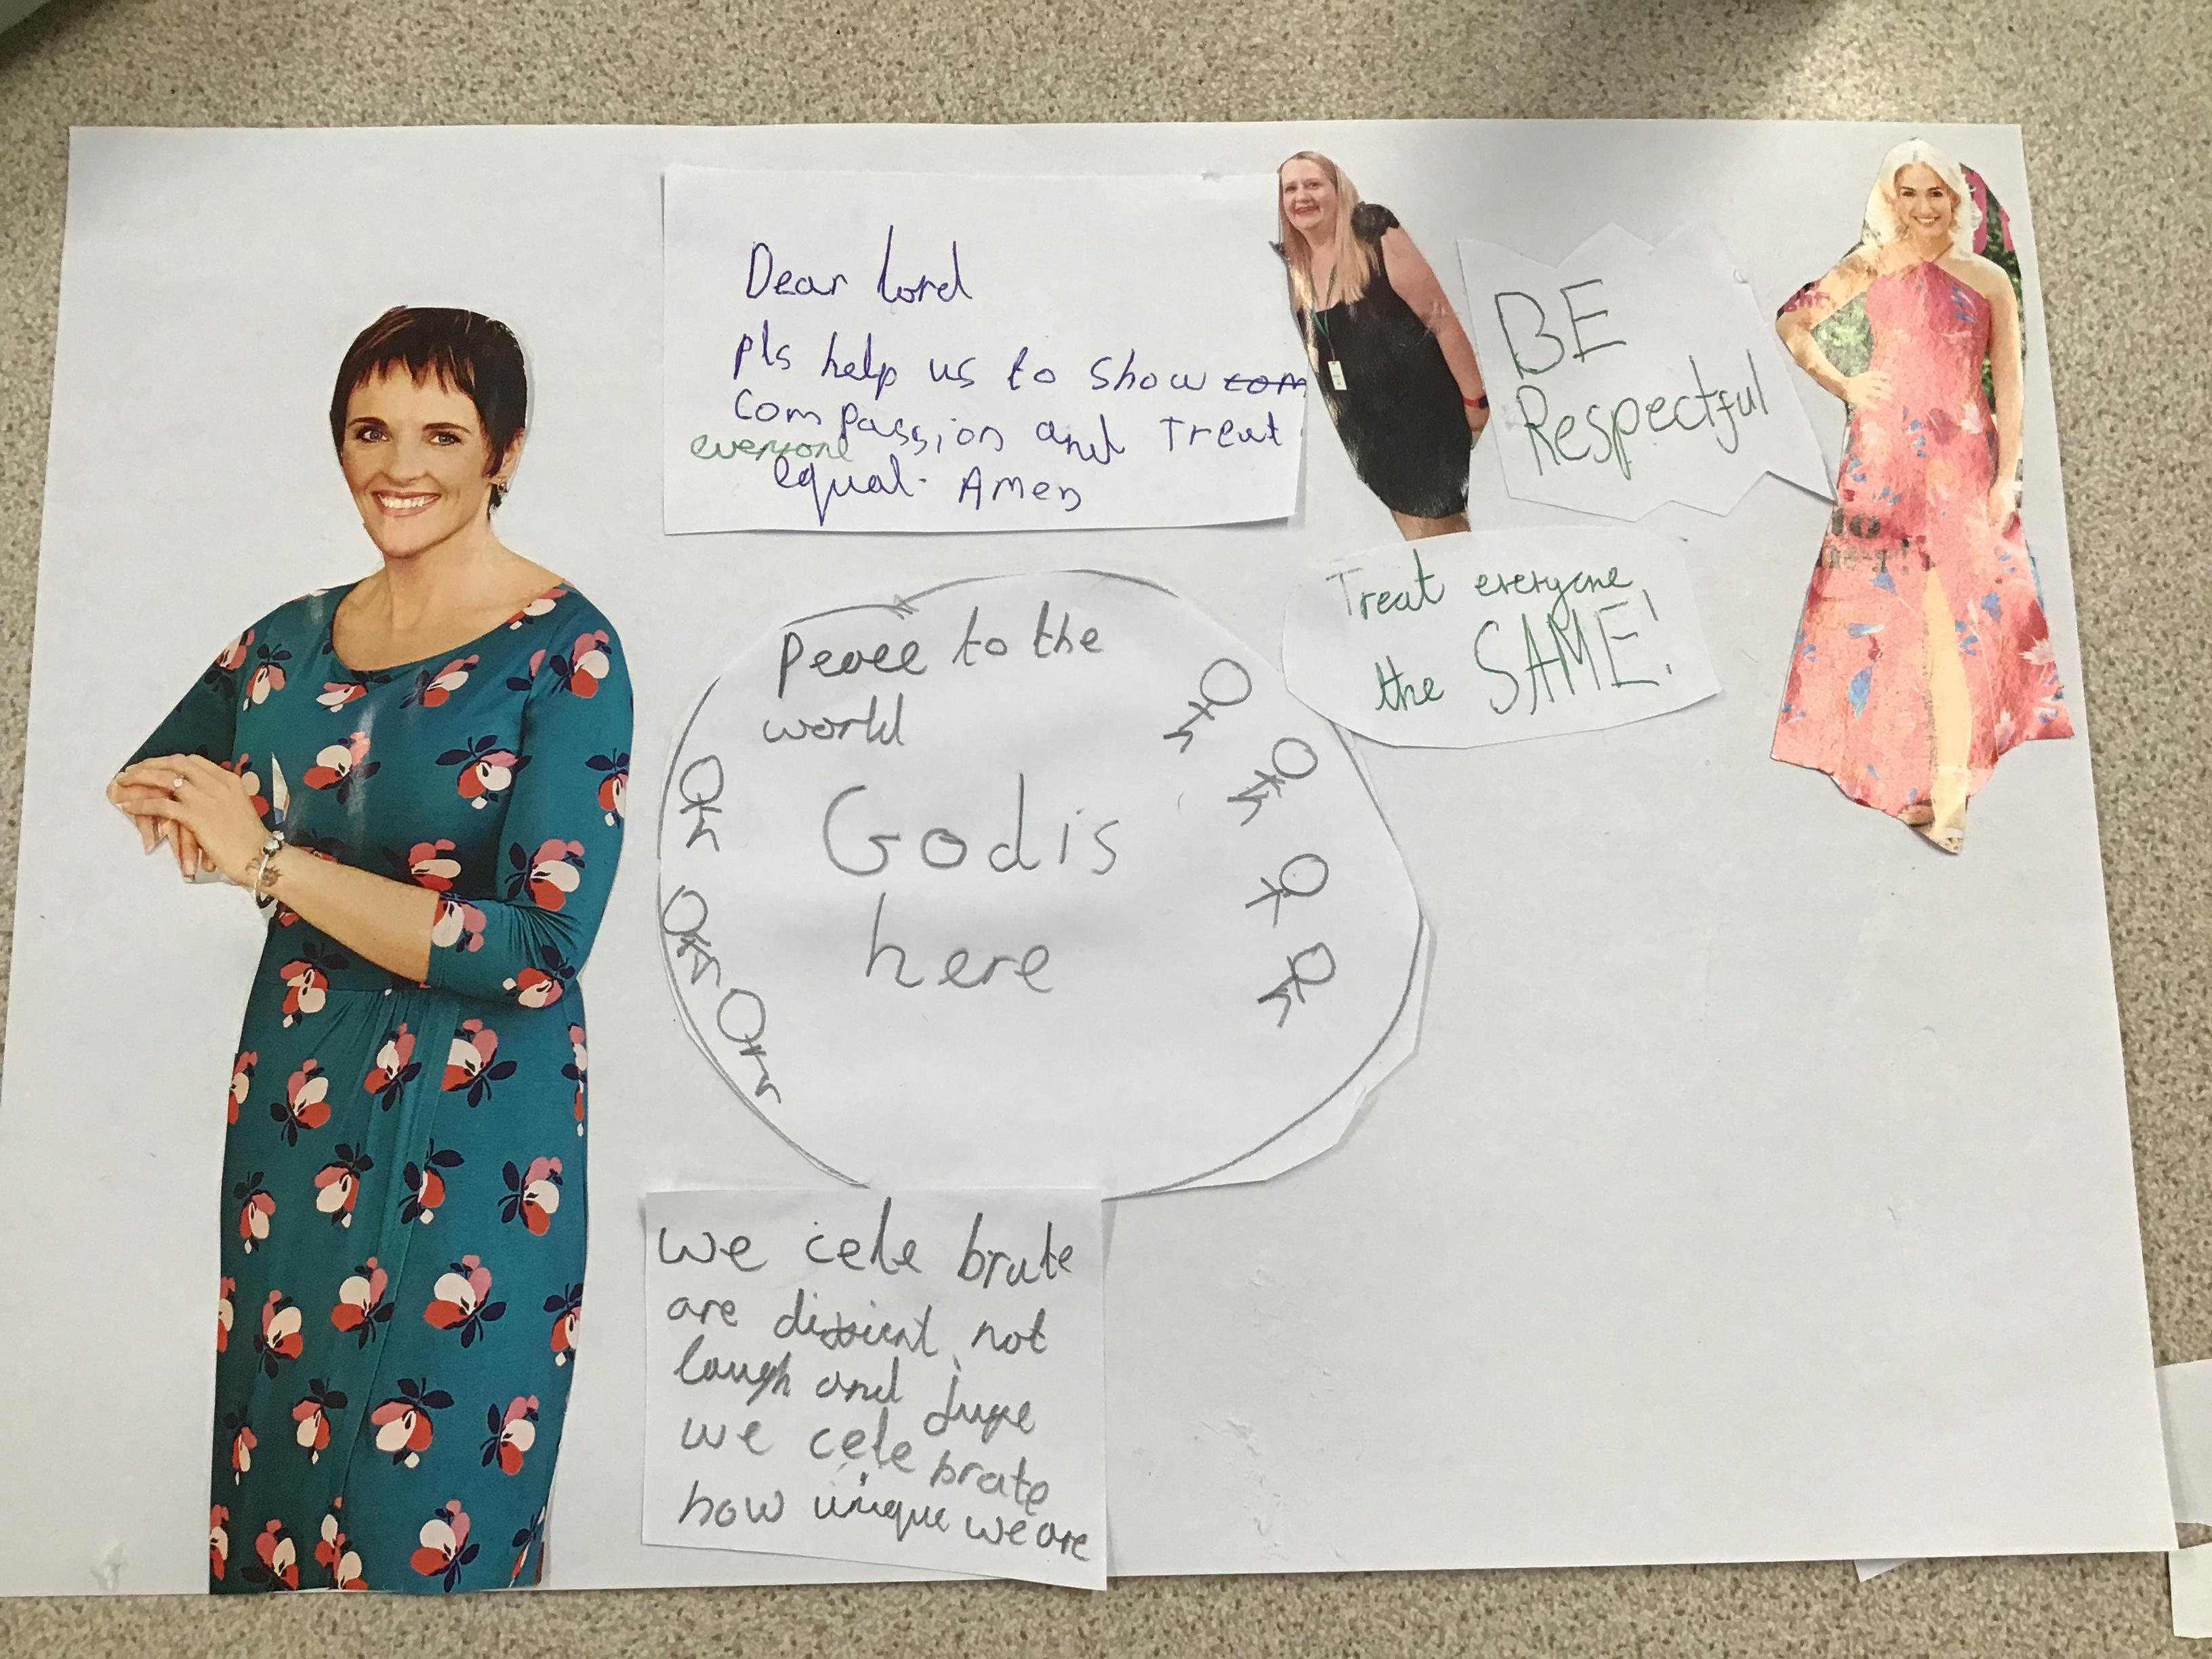 Dear lord
pls help us to show com
compassion and Treat
everyone
equal. Amen
BE
Respectful
Treat everyone
the SAME!
Peace to the
world
God is
here
we cele brate
are not
laugh and juge
we cele brate
how unique we are